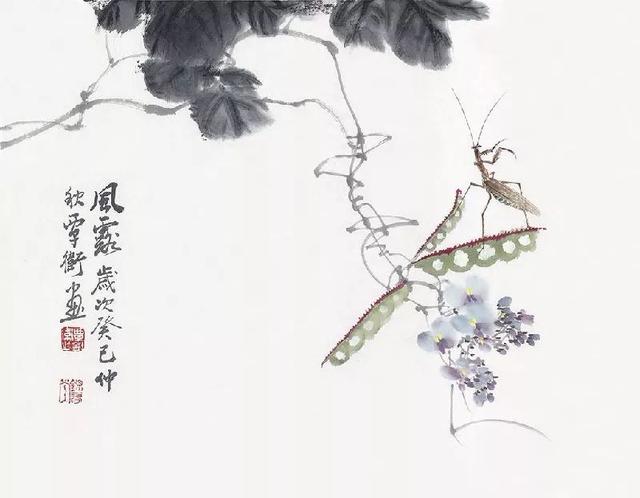 風露歲次癸巳仲
秋覃畫